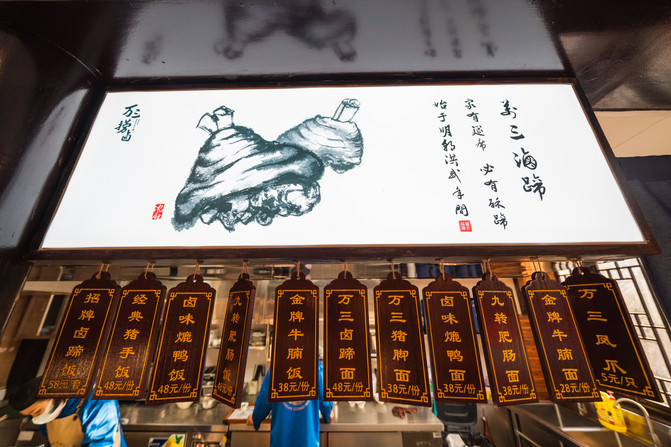 万三
捞卤
万三滷蹄
家有筵席 必有酥蹄
始于明朝洪武年間
招牌卤蹄饭
58元/套
经典猪手饭
48元/份
卤味爊鸭饭
48元/份
九转肥肠饭
金牌牛腩饭
38元/份
万三卤蹄面
48元/份
万三猪脚面
38元/份
卤味爊鸭面
38元/份
九转肥肠面
38元/份
金牌牛腩面
28元/份
万三凤爪
5元/只